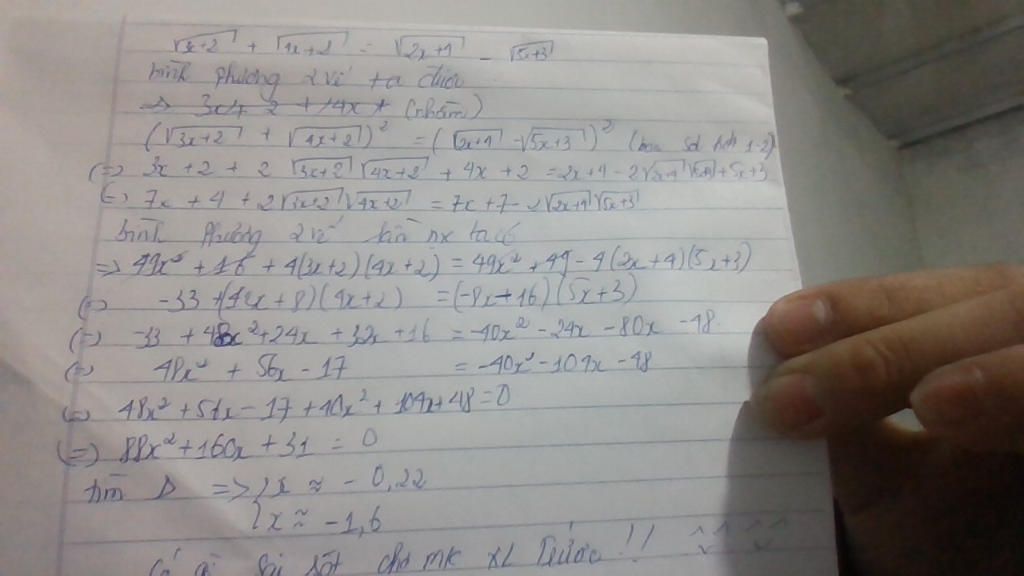 √3x+2 + √4x+2 = √2x+4 - √5x+3
bình phương 2 vế ta được
=> 3x+ 2 + 4x + (nhầm)
(√3x+2 + √4x+2)² = (√2x+4 - √5x+3)²
(=) 3x + 2 + 2 √3x+2 √4x+2 + 4x + 2 = 2x+4 - 2√2x+4 √5x+3 + 5x+3
(=) 7x + 4 + 2√3x+2 √4x+2 = 7x + 7 - 2√2x+4 √5x+3
bình phương 2 vế lần nx ta có
=> 49x² + 16 + 4(3x+2)(4x+2) = 49x² + 49 - 4(2x+4)(5x+3)
(=) -33 + (12x + 8)(4x+2) = (-8x - 16)(5x+3)
(=) -33 + 48x² + 24x + 32x + 16 = -40x² - 24x - 80x - 48
(=) 48x² + 56x - 17 = -40x² - 104x - 48
(=) 48x² + 56x - 17 + 40x² + 104x + 48 = 0
(=) 88x² + 160x + 31 = 0
tìm Δ => { x ≈ - 0,22
{ x ≈ - 1,6
Có gì sai sót cho mk XL Trước !!